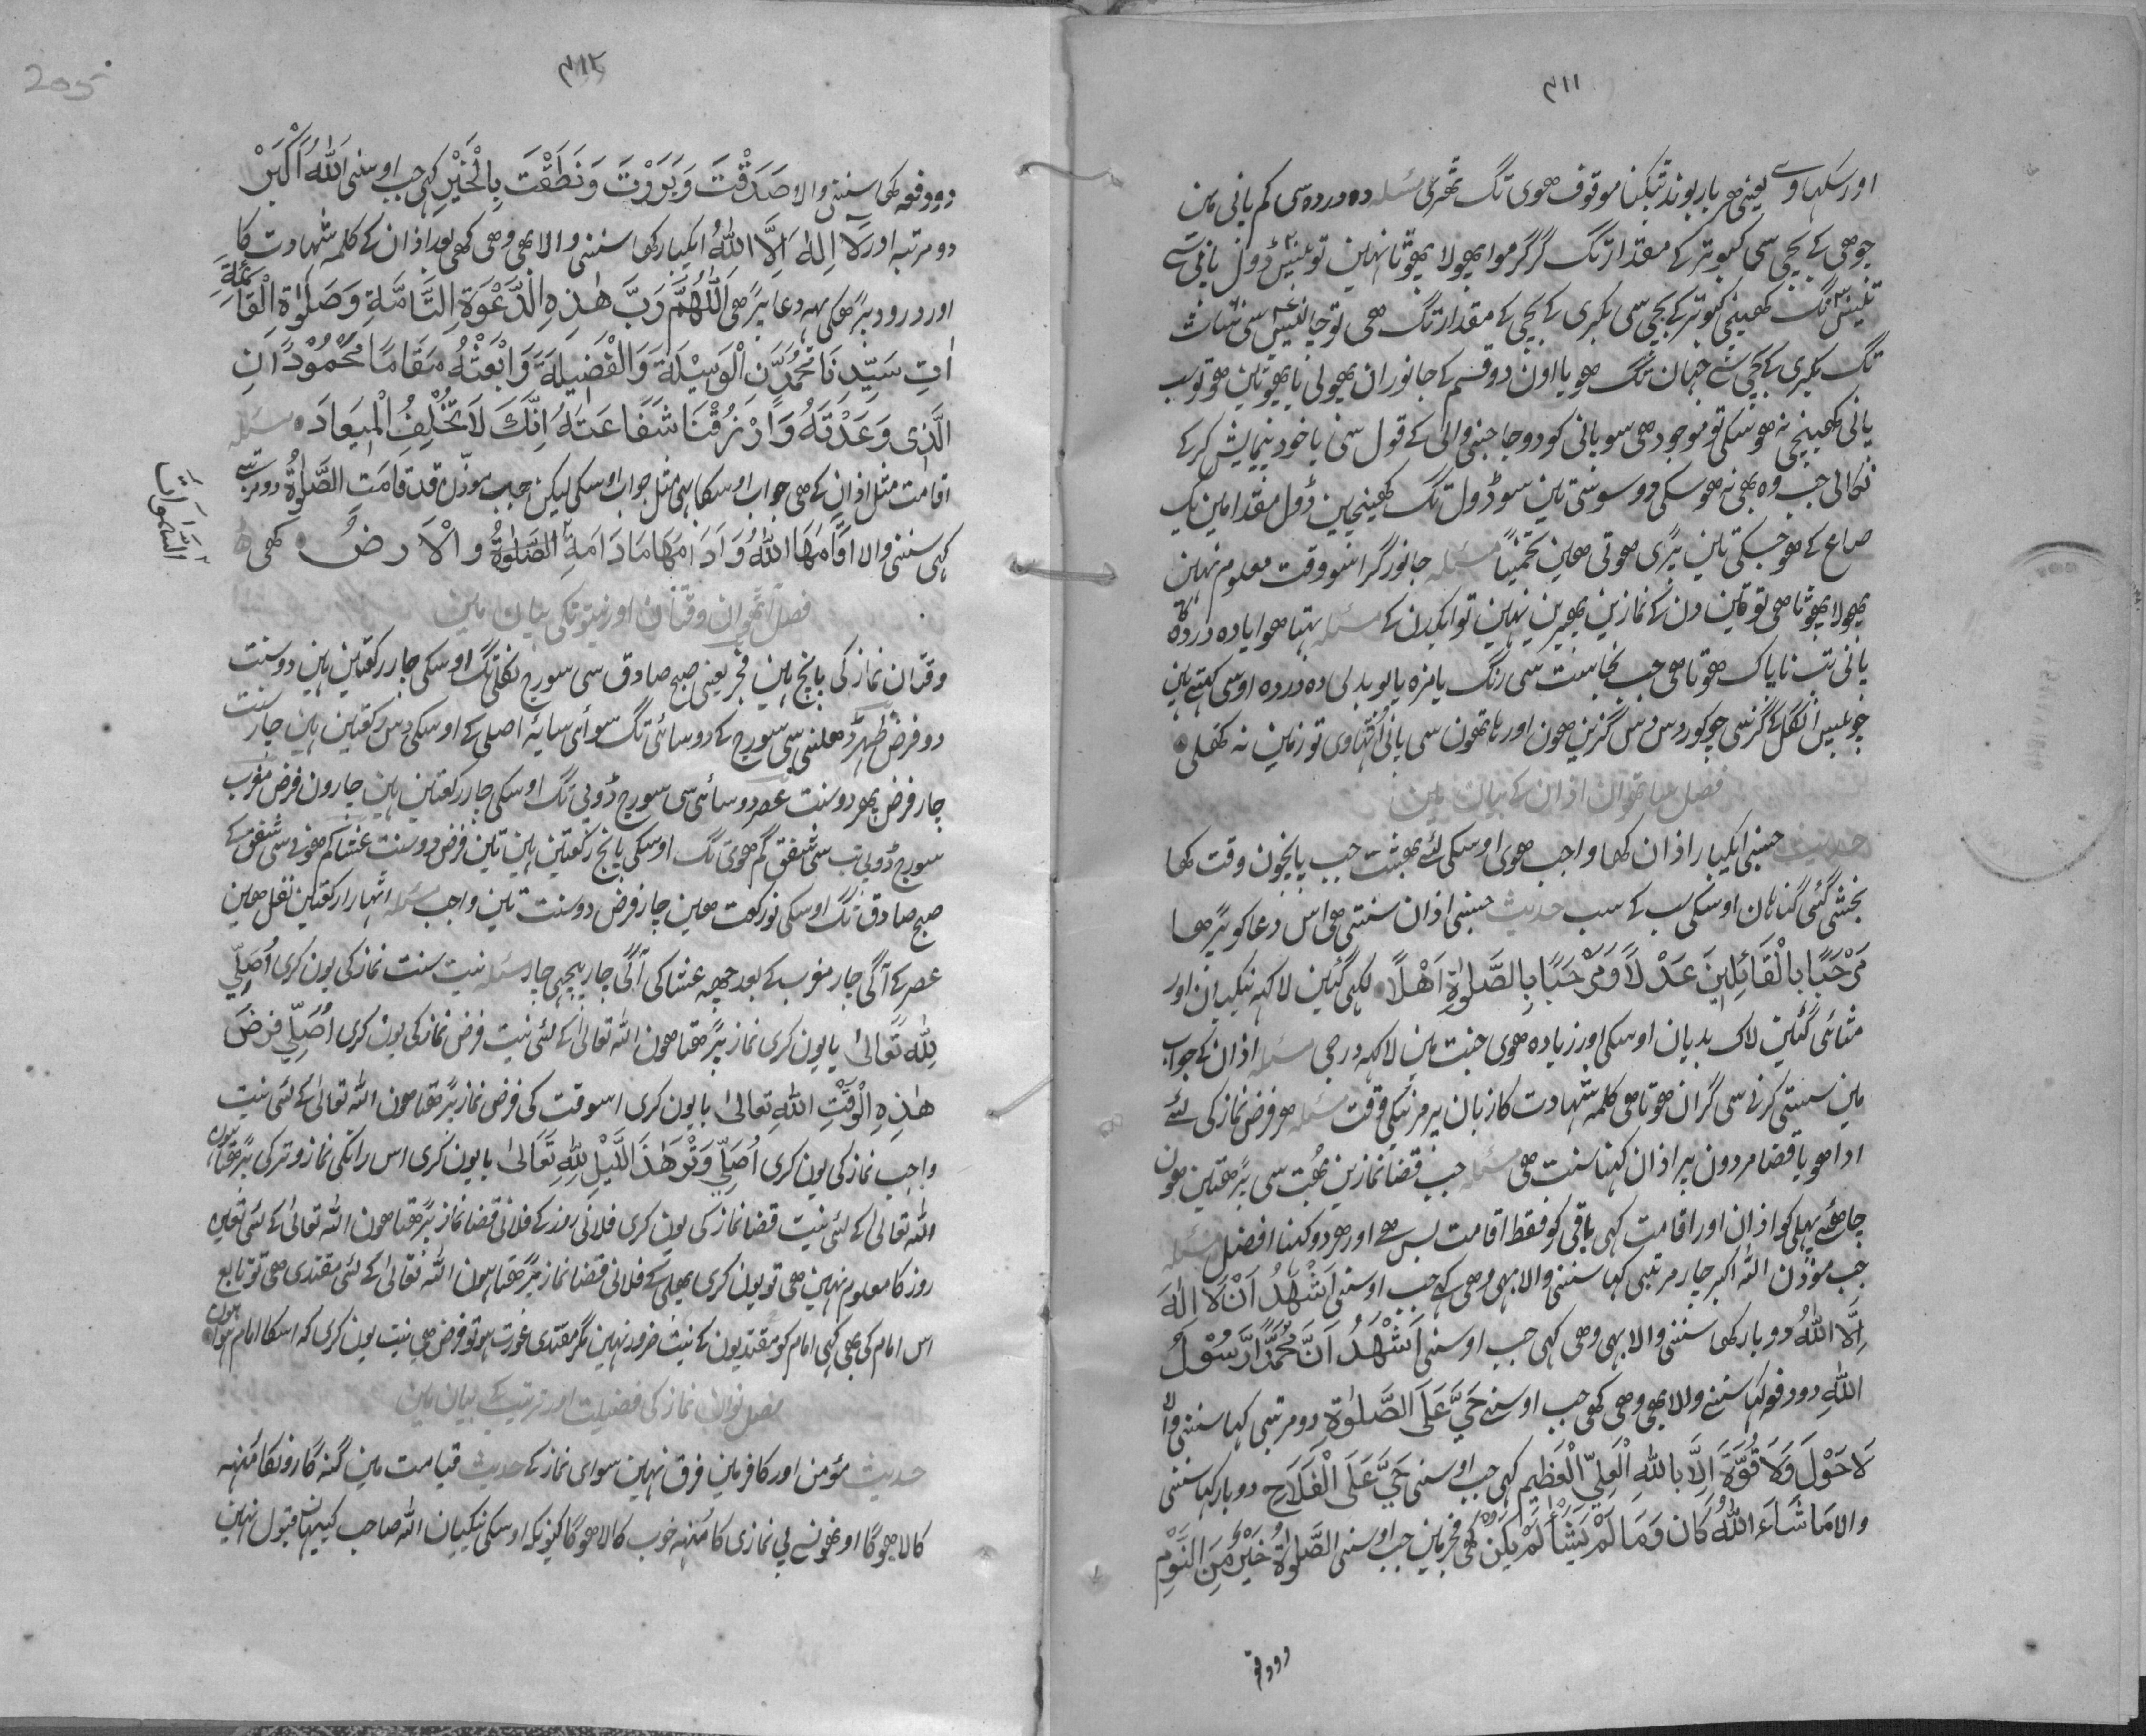 ۳۱۱
اور سکہاوے یعنی هر بار بوند ٹپکنا موقوف هوی تگ تهری مسئله ده در ده سی کم پانی مین
چوهی کے بچی سی کبوتر کے مقدار تگ گر گر موا پهولا پهوٹا نہین تو بیس ڈول پانی سے
تیس تگ کهینچی کبوتر کے بچی سی بکری کے بچی کے مقدار تگ هی تو چالیس سی ساٹ
تگ بکری کے بچی سے جہان تگ هو یا اون دو قسم کے جانوران پهولی یا پهوٹین هو تو سب
پانی کهینچی نہ هو سکی تو موجود هی سو پانی کو دو جاجنی والی کے قول سی یا خود پیمایش کرکے
نکالی جب وہ بهی نہ هو سکی دو سو سی تین سو ڈول تگ کهینچین ڈول مقدار مین یک
صاع کے هو خشکی تین پڑی هوتی هین تخمینًا مسئله جانور گرا سو وقت معلوم نہین
پهولا پهوٹا هی تو تین دن کے نمازین پهیرین نہین تو ایکدن کے مسئله بہتا هوا یا ده در ده کا
پانی تب ناپاک هوتا هی جب نجاست سی رنگ یا مزہ یا بو بدلی ده در ده اوسی کہتے ہین
چوبیس انگل کے گز سی چوکور دس دس گزین هون اور هاتهون سی پانی اٹهاوی تو زمین نہ کهلی
فصل ساتوان اذان کے بیان مین
حدیث جسنی ایکبار اذان کها واجب هوی اوسکی لئے بهشت جب پانچون وقت کها
بخشی گئی گناہان اوسکی سب کے سب حدیث جسنی اذان سنتی هی اس دعا کو پڑها
مَرْحَبًا بِالْقَائِلِينَ عَدْلًا وَمَرْحَبًا بِالصَّلٰوةِ اَهْلًا لکهی گئین لاکهہ نیکیان اور
مٹائی گئین لاک بدیان اوسکی اور زیادہ هوی جنت مین لاکہہ درجی مسئله اذان کے جواب
مین سستی کرنے سی گران هوتا هی کلمہ شہادت کا زبان پر مرنیکی وقت مسئله هر فرض نماز کی لئے
ادا هو یا قضا مردون پر اذان کہنا سنت هی مسئله جب قضا نمازین بہت سی پڑهتین هون
چاهئے پہلی کو اذان اور اقامت کہی باقی کو فقط اقامت بس هے اور هر دو کہنا افضل مسئله
جب موذن الله اکبر چار مرتبی کہا سننی والا بهی وهی کہے جب اوسنی اَشْهَدُ اَنْ لَا اِلٰهَ
اِلَّا اللّٰهُ دو بار کهی سننی والا بهی وهی کہی جب اوسنی اَشْهَدُ اَنَّ مُحَمَّدًا رَّسُوْلُ
اللّٰهِ دو دفعہ کہا سننے والا بهی وهی کهو جب اوسنے حَيَّ عَلَى الصَّلٰوةِ دو مرتبی کہا سننی والا
لَا حَوْلَ وَلَا قُوَّةَ اِلَّا بِاللّٰهِ الْعَلِيِّ الْعَظِيمِ کہی جب اوسنی حَيَّ عَلَى الْفَلَاحِ دو بار کہا سننی
والا مَا شَاءَ اللّٰهُ كَانَ وَمَا لَمْ يَشَأْ لَمْ يَكُنْ کهی فجر مین جب اوسنی الصَّلٰوةُ خَيْرٌ مِّنَ النَّوْمِ
دو دفعہ
۳۱۲
205
دو دفعہ کها سننی والا صَدَقْتَ وَبَرَرْتَ وَنَطَقْتَ بِالْخَيْرِ کہی جب اوسنی اَللّٰهُ اَكْبَرْ
دو مرتبہ اور لَا اِلٰهَ اِلَّا اللّٰهُ ایکبار کها سننی والا بهی وهی کهی بعد اذان کے کلمہ شہادت کا
اور درود پڑهکی یہہ دعا پڑهی اَللّٰهُمَّ رَبَّ هٰذِهِ الدَّعْوَةِ التَّامَّةِ وَصَلٰوةِ الْقَائِمَةِ
اٰتِ سَيِّدِنَا مُحَمَّدَنِ الْوَسِيْلَةَ وَالْفَضِيلَةَ وَابْعَثْهُ مَقَامًا مَحْمُوْدَانِ
الَّذِى وَعَدْتَهُ وَارْزُقْنَا شَفَاعَتَهُ اِنَّكَ لَا تُخْلِفُ الْمِيعَادَ مسئله
اقامت مثل اذان کے هی جواب اوسکا بهی مثل جواب اوسکی لیکن جب موذن قَدْ قَامَتِ الصَّلٰوةُ دو مرتبے
کہی سننی والا اَقَامَهَا اللّٰهُ وَاَدَامَهَا مَا دَامَةِ الصَّلٰوةُ وَالْاَرضُ کهی
السَّمٰوَات
فصل آٹهوان وقتان اور نیتونکی بیان مین
وقتان نماز کی پانچ ہین فجر یعنی صبح صادق سی سورج نکلی تگ اوسکی چار رکعتین ہین دو سنت
دو فرض ظہر ڈهلنی سی سورج کے دو سائی تگ سوائی سایۂ اصلی کے اوسکی دس رکعتین ہین چار سنت
چار فرض پهر دو سنت عصر دو سائی سی سورج ڈوبی تگ اوسکی چار رکعتین ہین چارون فرض مغرب
سورج ڈوبی سی شفق گم هوی تگ اوسکی پانچ رکعتین ہین تین فرض دو سنت عشا گم هونے سی شفق کے
صبح صادق تگ اوسکی نو رکعت هین چار فرض دو سنت تین واجب مسئله اٹهارا رکعتین نفل هین
عصر کے آگی چار مغرب کے بعد چهہ عشا کی آگی چار پیچهی چار مسئله نیت سنت نماز کی یون کری اُصَلِّي
لِلّٰهِ تَعَالىٰ یا یون کری نماز پڑهتا هون الله تعالیٰ کے لئی نیت فرض نماز کی یون کری اُصَلِّي فَرْضَ
هٰذِهِ الْوَقْتِ اللّٰهِ تَعَالىٰ یا یون کری اسوقت کی فرض نماز پڑهتا هون الله تعالیٰ کے لئی نیت
واجب نماز کی یون کری اُصَلِّي وِتْرَ هٰذَ اللَّيْلِ لِلّٰهِ تَعَالىٰ یا یون کری اس راتکی نماز وتر کی پڑهتا هون
الله تعالیٰ کے لئی نیت قضا نماز کی یون کری فلانی روز کے فلانی قضا نماز پڑهتا هون الله تعالیٰ کے لئی تعین
روز کا معلوم نہین هی تو یون کری پهلی کے فلانی قضا نماز پڑهتا ہون الله تعالیٰ کے لئی مقتدی هی تو تابع
اس امام کی بهی کہی امام کو مقتدیون کے نیت ضرور نہین مگر مقتدی عورت ہو تو فرض هی نیت یون کری کہ اسکا امام ہوا ہون
فصل نوان نماز کی فضیلت اور ترتیب کے بیان مین
حدیث مؤمن اور کافر مین فرق نہین سوای نماز کے حدیث قیامت مین گنہ گارونکا مُنہہ
کالا هوگا اونهونسے بی نمازی کا مُنہہ خوب کالا هوگا کیونکہ اوسکی نیکیان الله صاحب کییہان قبول نہین